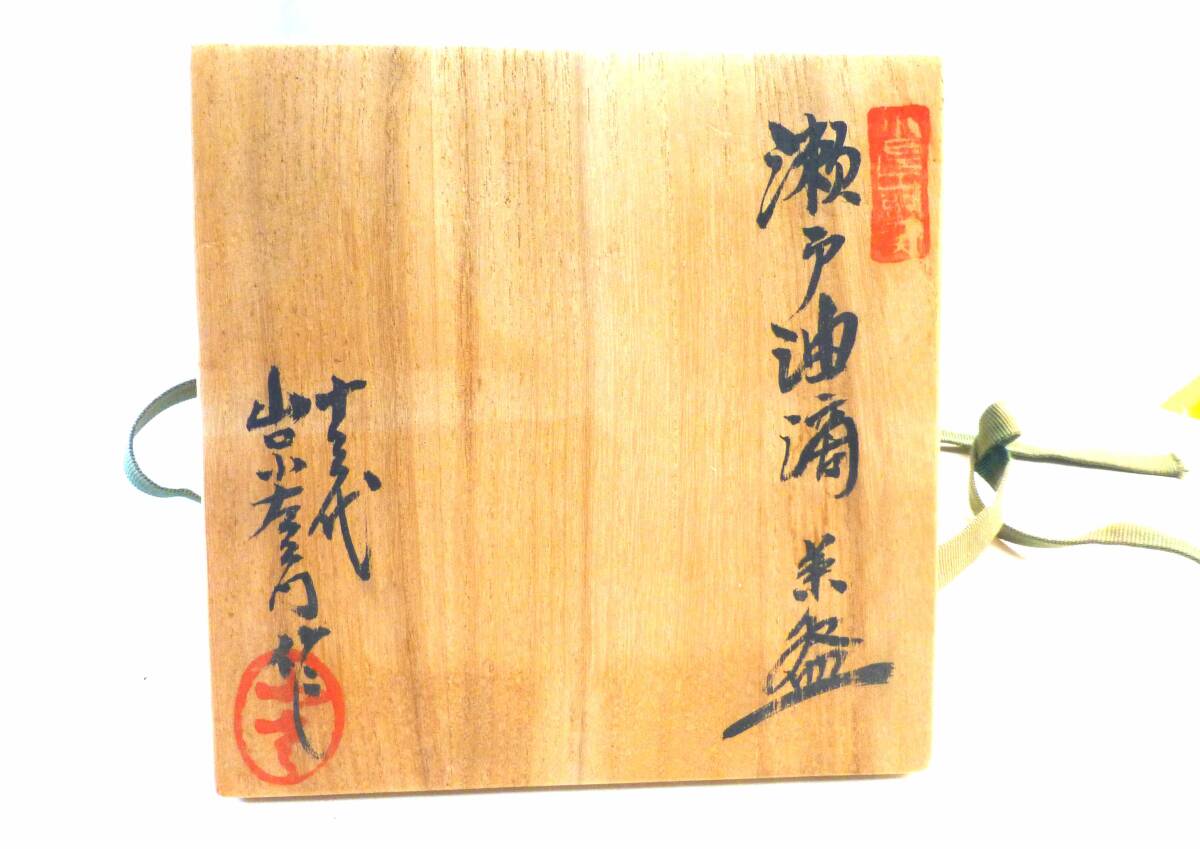 瀬戸油滴 茶盌
十三代
山口小左衛門作